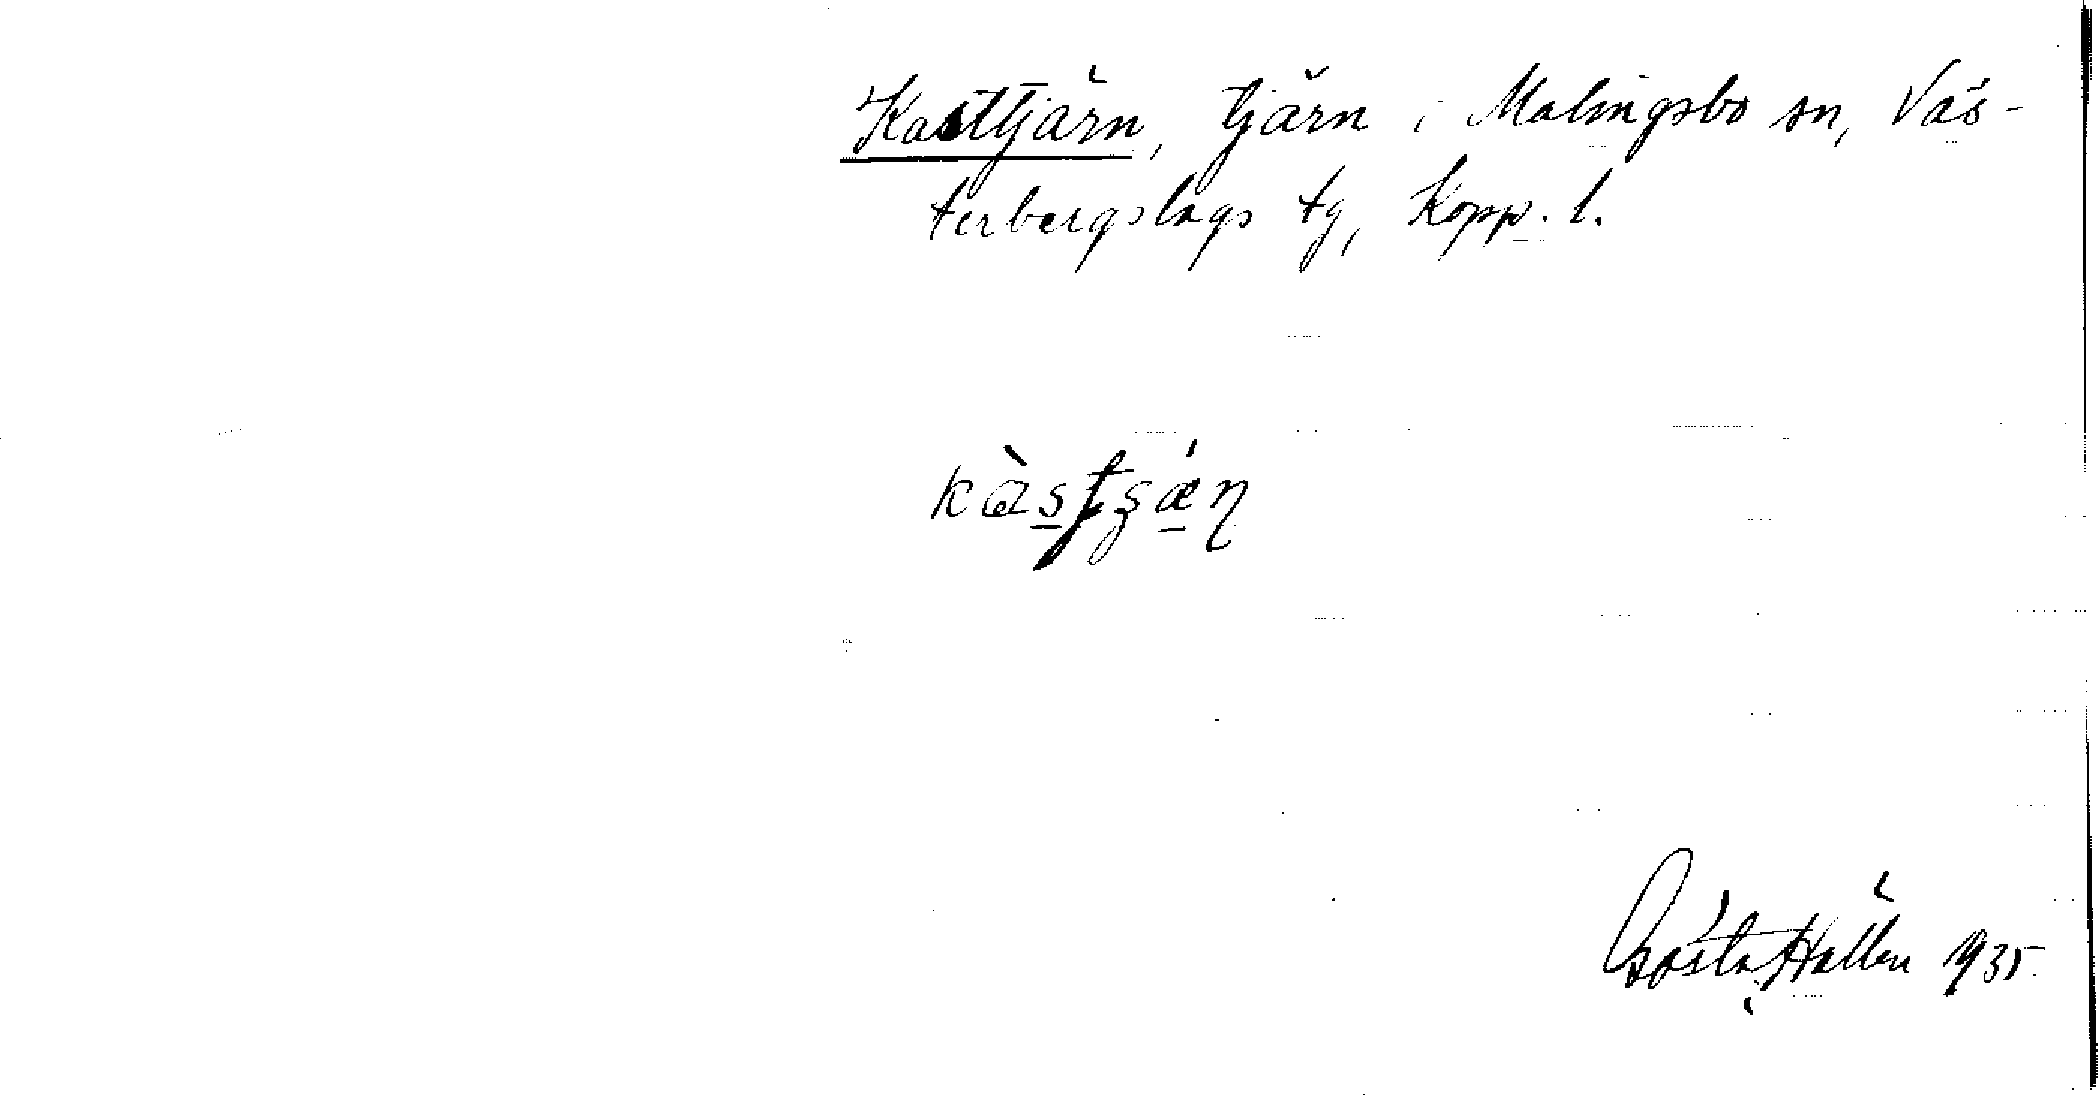 Kasttjärn, tjärn i Malingsbo sn, Väs-
terbergslags tg, Kopp. l.
kàstʂǽɳ
Gösta Hallén 1935.